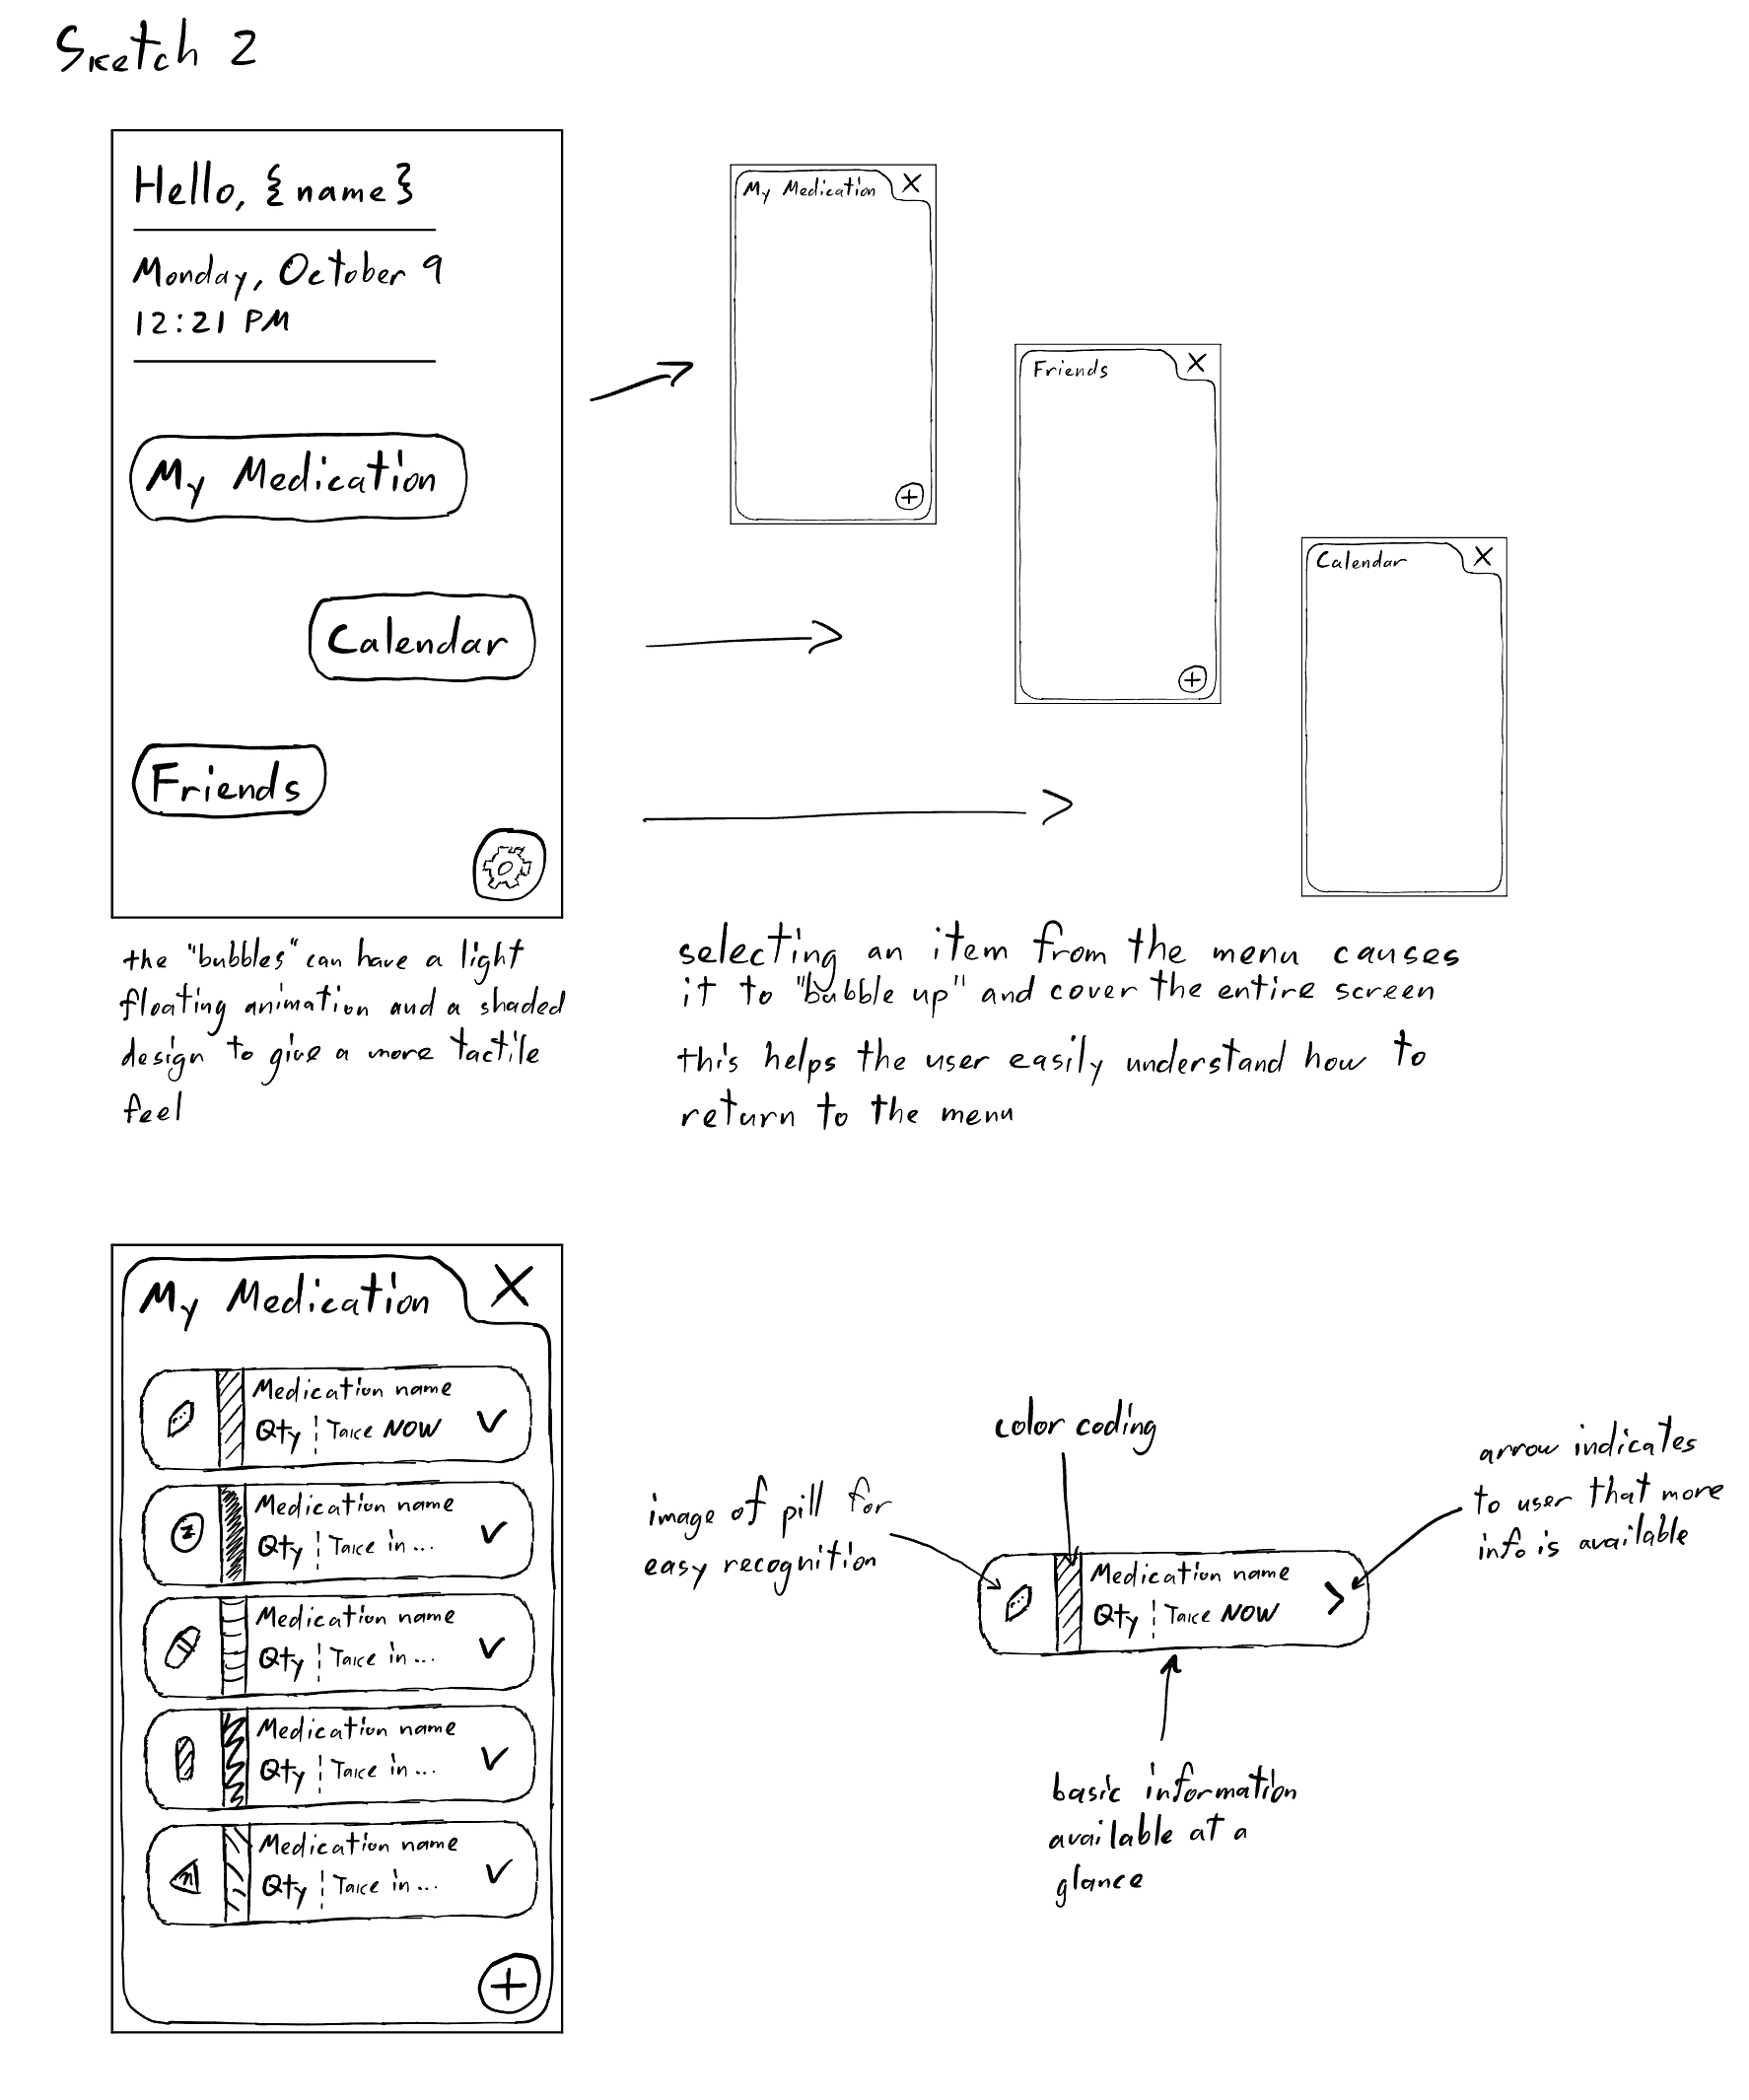 Sketch 2
Hello, {name}
Monday, October 9
12:21 PM
My Medication
Calendar
Friends
My Medication X
Friends X
Calendar X
the "bubbles" can have a light
floating animation and a shaded
design to give a more tactile
feel
selecting an item from the menu causes
it to "bubble up" and cover the entire screen
this helps the user easily understand how to
return to the menu
My Medication X
Medication name
Qty ¦ Take NOW
Medication name
Qty ¦ Take in...
Medication name
Qty ¦ Take in...
Medication name
Qty ¦ Take in...
Medication name
Qty ¦ Take in...
color coding
image of pill for
easy recognition
arrow indicates
to user that more
info is available
Medication name
Qty ¦ Take NOW
basic information
available at a
glance